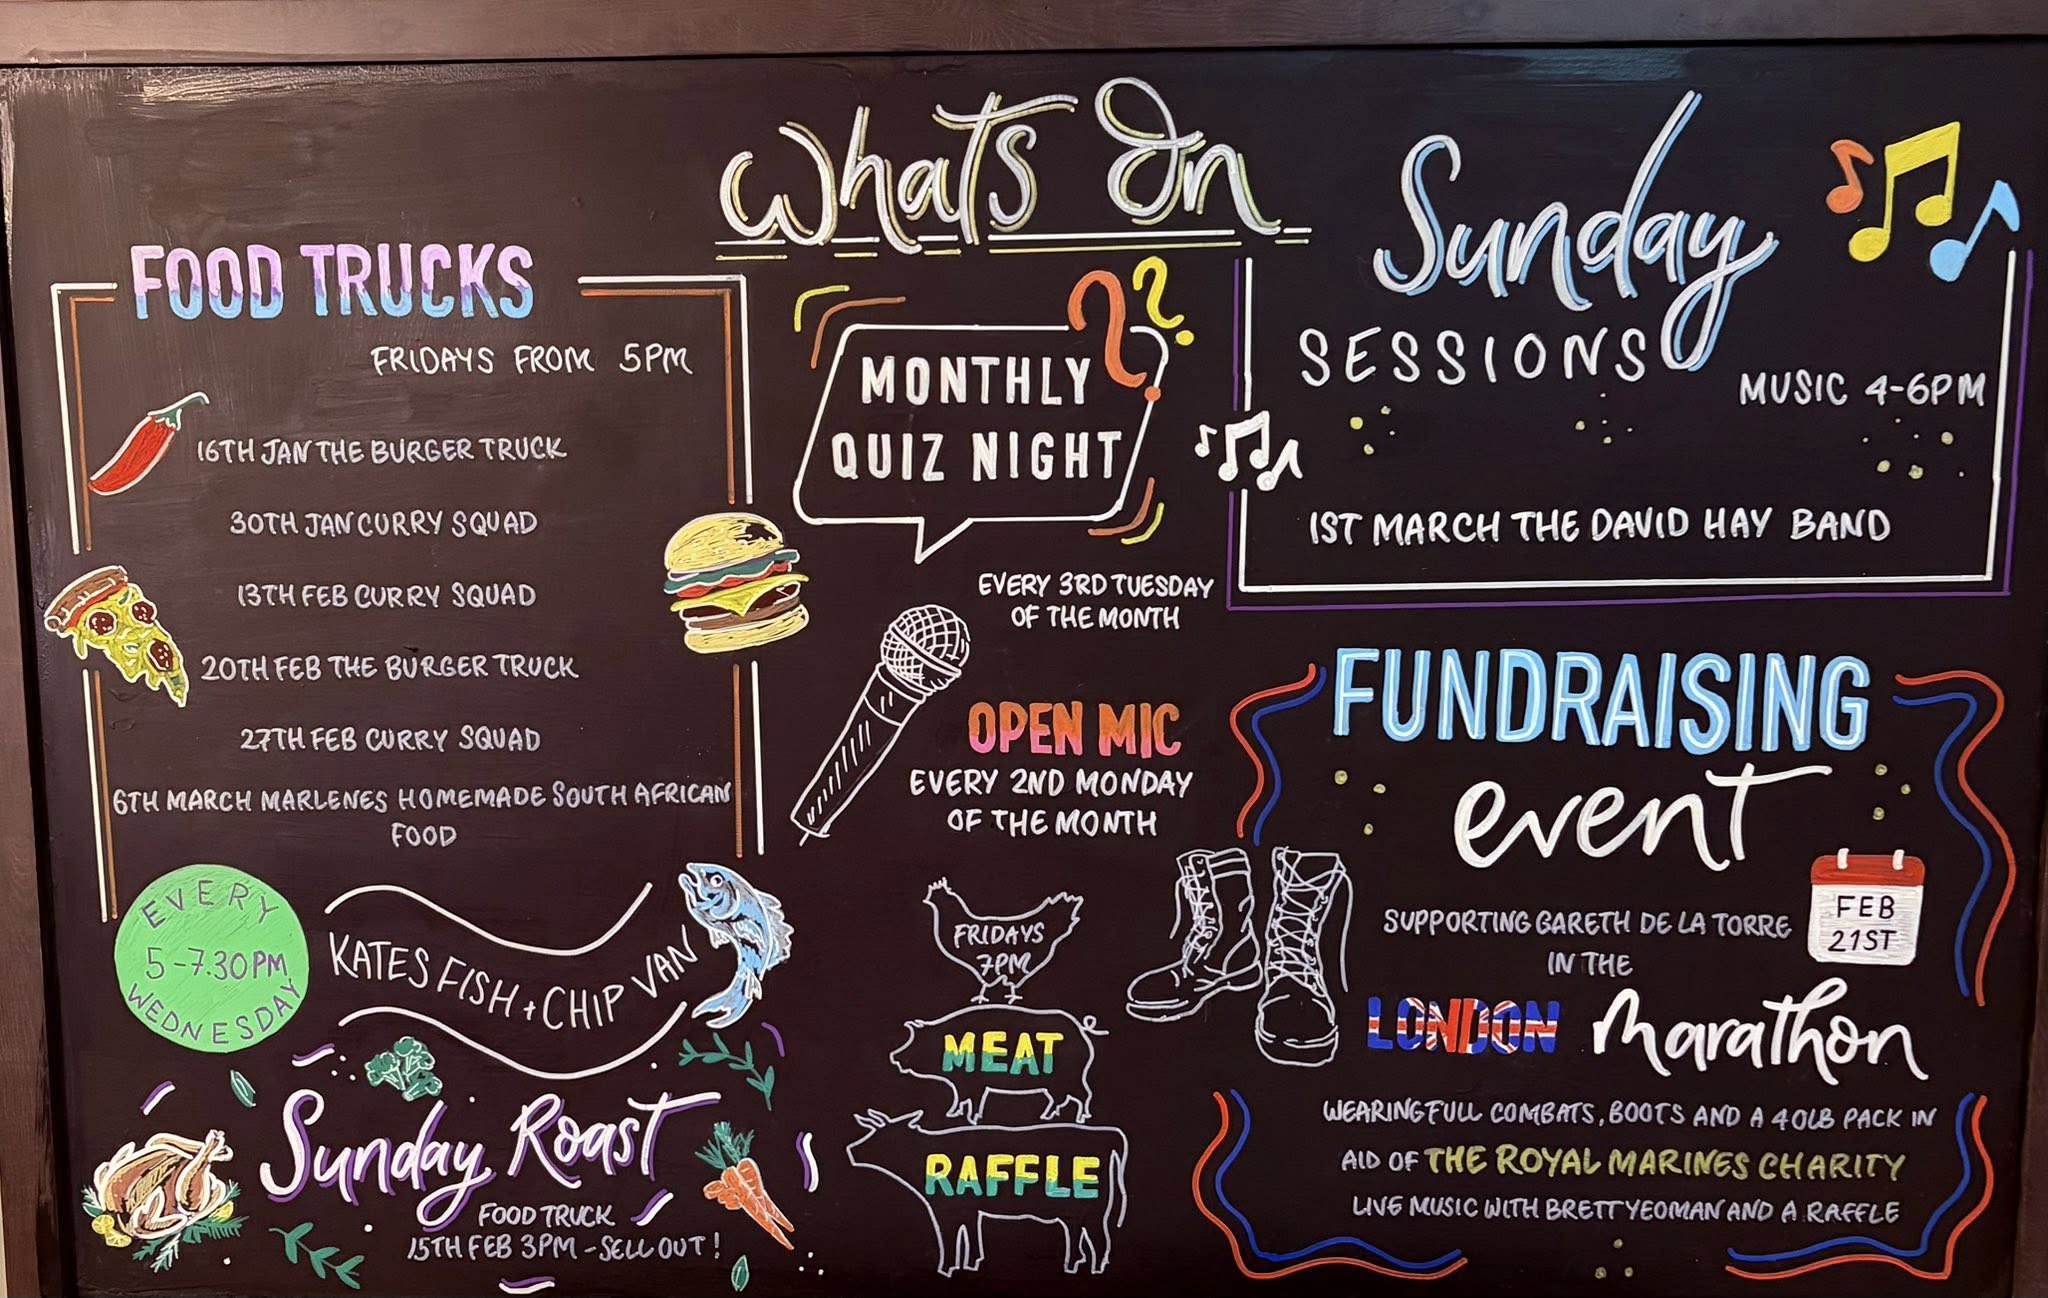 Whats On
FOOD TRUCKS
FRIDAYS FROM 5PM
16TH JAN THE BURGER TRUCK
30TH JAN CURRY SQUAD
13TH FEB CURRY SQUAD
20TH FEB THE BURGER TRUCK
27TH FEB CURRY SQUAD
6TH MARCH MARLENES HOMEMADE SOUTH AFRICAN
FOOD
EVERY
5-7.30PM
WEDNESDAY
KATES FISH + CHIP VAN
Sunday Roast
FOOD TRUCK
15TH FEB 3PM - SELL OUT!
MONTHLY
QUIZ NIGHT
EVERY 3RD TUESDAY
OF THE MONTH
OPEN MIC
EVERY 2ND MONDAY
OF THE MONTH
FRIDAYS
7PM
MEAT
RAFFLE
Sunday
SESSIONS
MUSIC 4-6PM
1ST MARCH THE DAVID HAY BAND
FUNDRAISING
event
FEB
21ST
SUPPORTING GARETH DE LA TORRE
IN THE
LONDON marathon
WEARING FULL COMBATS, BOOTS AND A 40LB PACK IN
AID OF THE ROYAL MARINES CHARITY
LIVE MUSIC WITH BRETT YEOMAN AND A RAFFLE